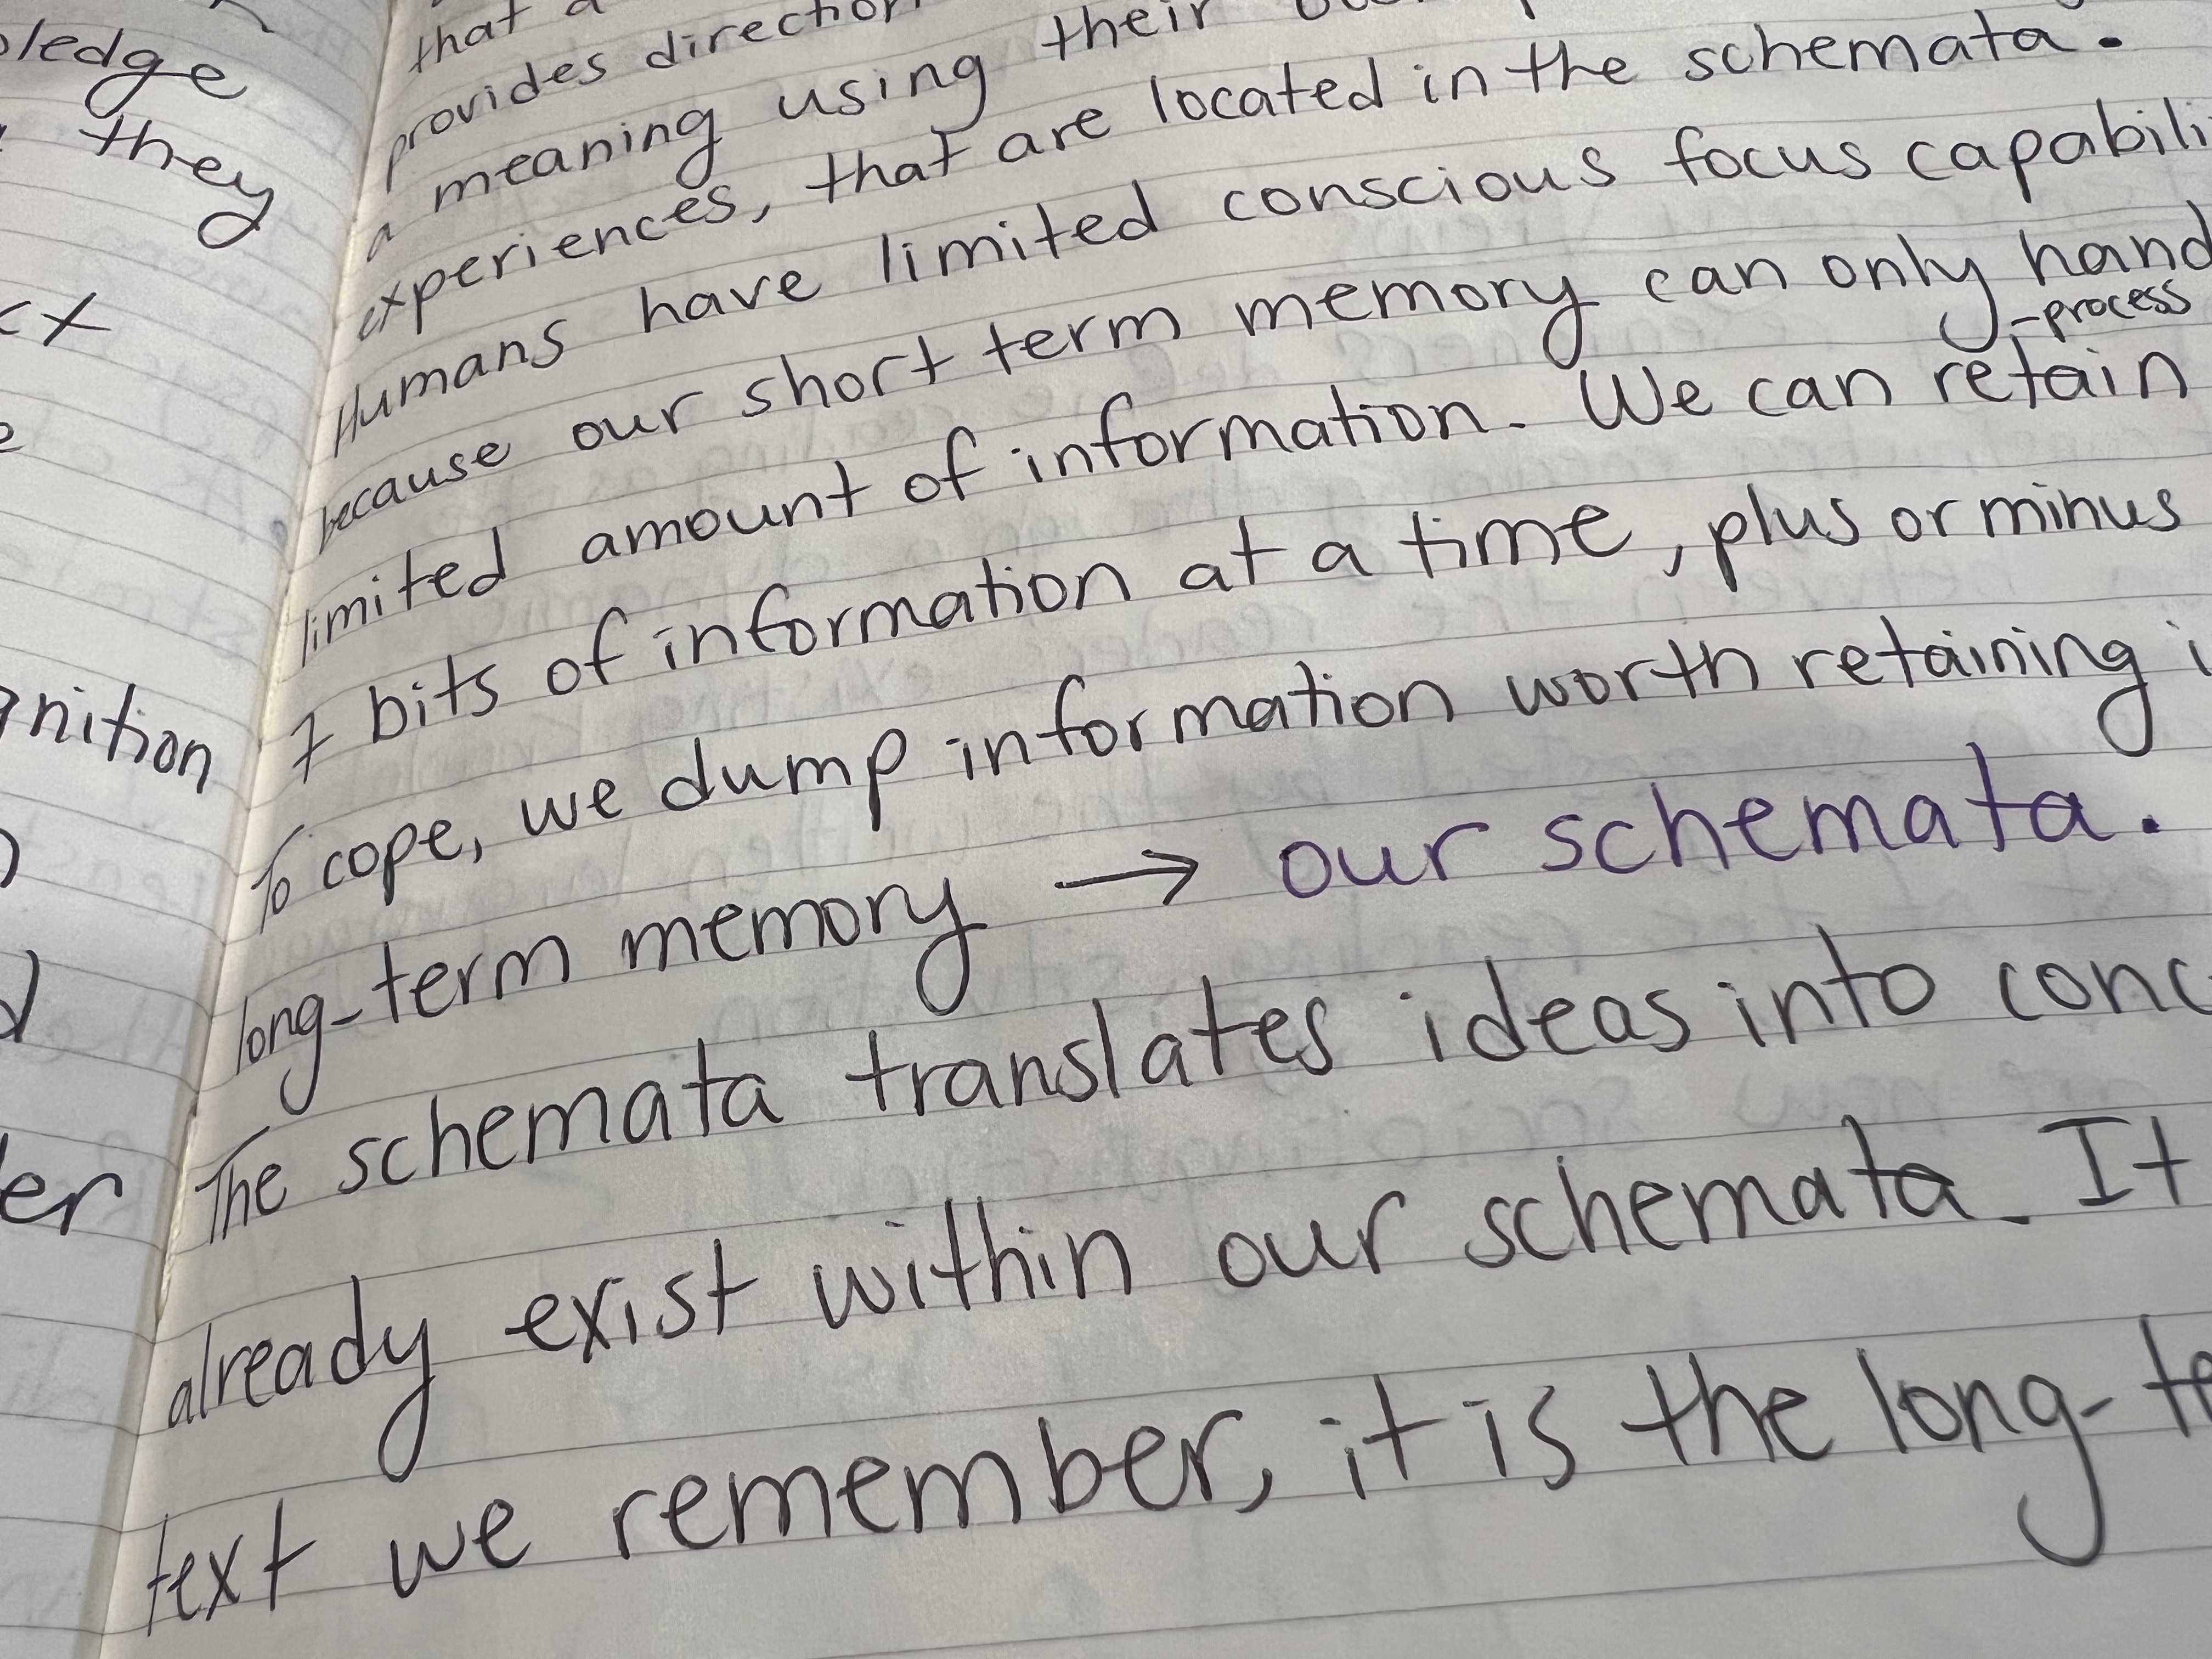 ledge
they
gnition
er
that a
provides direction
a meaning using their
experiences, that are located in the schemata.
Humans have limited conscious focus capabili
because our short term memory can only hand
-process
limited amount of information. We can retain
7 bits of information at a time, plus or minus
To cope, we dump information worth retaining i
long-term memory → our schemata.
The schemata translates ideas into conc
already exist within our schemata. It
text we remember, it is the long-te